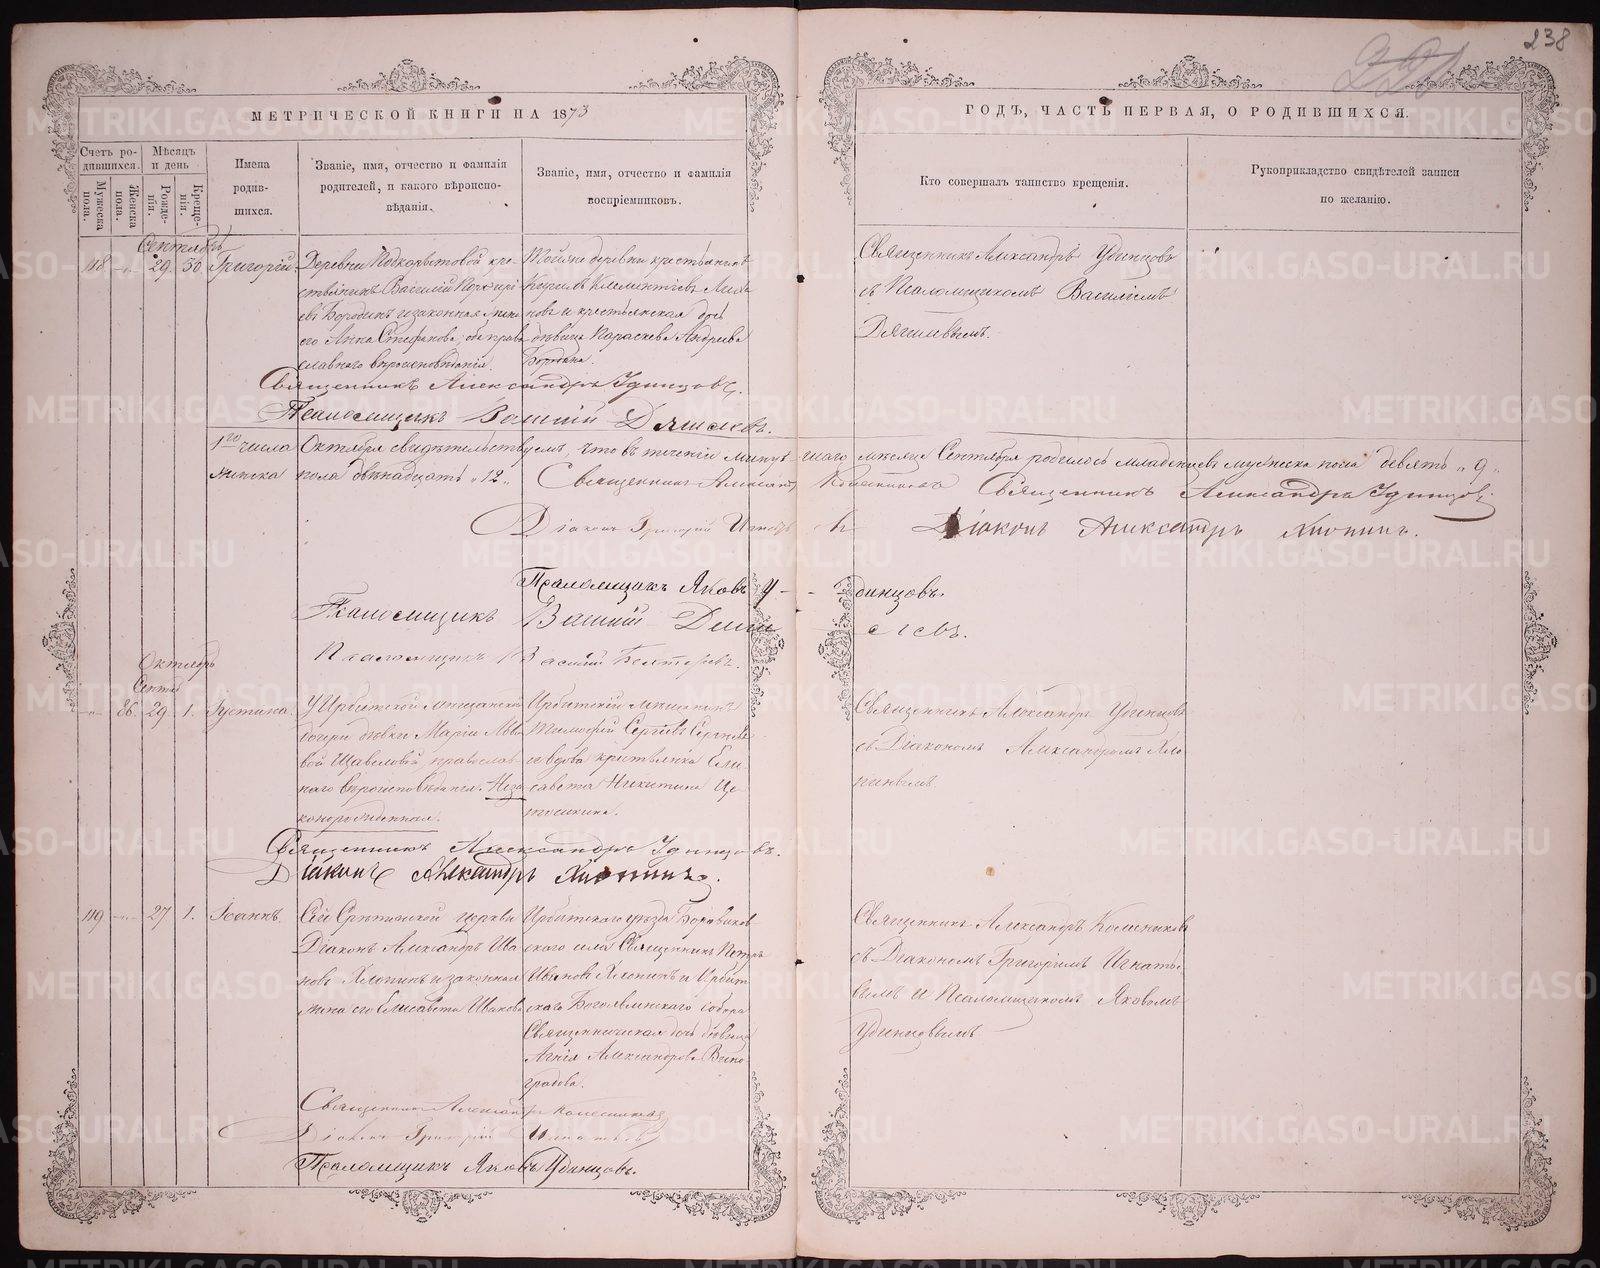 238
МЕТРИЧЕСКОЙ КНИГИ НА 1873
ГОДЪ, ЧАСТЬ ПЕРВАЯ, О РОДИВШИХСЯ.
Счетъ ро-
дившихся.
Мѣсяцъ
и день
Мужеска
пола.
Женска
пола.
Рожде-
нія.
Креще-
нія.
Имена
родив-
шихся.
Званіе, имя, отчество и фамилія
родителей, и какого вѣроиспо-
вѣданія.
Званіе, имя, отчество и фамилія
воспріемниковъ.
Кто совершалъ таинство крещенія.
Рукоприкладство свидѣтелей записи
по желанію.
Сентябрь
118 29 30 Григорій
Деревни крестьянинъ
Василій Порфирі
евъ Бородинъ и законная жена
его Анна Стефанова, оба право
славнаго вѣроисповѣданія.
Тойже деревни крестьянинъ
Кириллъ Климентіевъ
и крестьянская дочь
дѣвица Параскева Андреева
Бородина.
Священникъ Александръ Удинцовъ
съ Псаломщикомъ Василіемъ
Дягилевымъ.
Священникъ Александръ Удинцовъ.
Псаломщикъ Василій Дягилевъ.
1го числа Октября свидѣтельствуемъ, что въ теченіи минувшаго мѣсяца Сентября родилось младенцевъ мужеска пола девять „9„
женска пола двѣнадцать „12„ Священникъ Александръ Колесниковъ Священникъ Александръ Удинцовъ
Діаконъ Григорій Игнатьевъ Діаконъ Александръ Хлопинъ.
Псаломщикъ Яковъ Удинцовъ.
Псаломщикъ Василій Дягилевъ.
Псаломщикъ Василій
Октябрь
Сентяб
86. 29. 1. Іустина.
У Ирбитской мѣщанской
дочери дѣвки Маріи
вой Щавелевой, православ
наго вѣроисповѣданія. Неза
коннорожденная.
Ирбитскій мѣщанинъ
Тимофей Сергіевъ Сергѣевъ
и вдова крестьянка Ели
савета Никитина
Священникъ Александръ Удинцовъ
съ Діакономъ Александромъ Хло
пинымъ.
Священникъ Александръ Удинцовъ.
Діаконъ Александръ Хлопинъ.
119 27 1. Іоаннъ.
Сей Срѣтенской церкви
Діаконъ Александръ Ива
новъ Хлопинъ и законная
жена его Елисавета Иванова
Ирбитскаго уѣзда Боровиков
скаго села Священникъ Петръ
Ивановъ Хлопинъ и Ирбит
скаго Богоявленскаго собора
Священническая дочь дѣвица
Агнія Александрова Вино-
градова.
Священникъ Александръ Колесниковъ
съ Діакономъ Григоріемъ Игнатье
вымъ и Псаломщикомъ Яковомъ
Удинцовымъ
Священникъ Александръ Колесниковъ
Діаконъ Григорій Игнатьевъ
Псаломщикъ Яковъ Удинцовъ.
METRIKI.GASO-URAL.RU